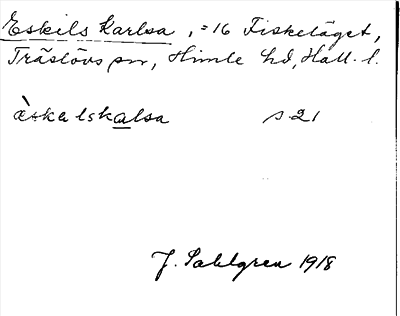 Eskils Karlsa, =16 Fiskeläget,
Träslövs sn, Himle hd, Hall. l.
æ̀skalskalsa s 21
J. Sahlgren 1918